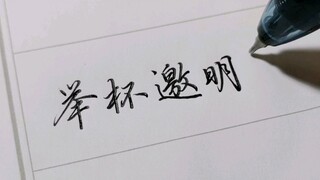 举杯邀明